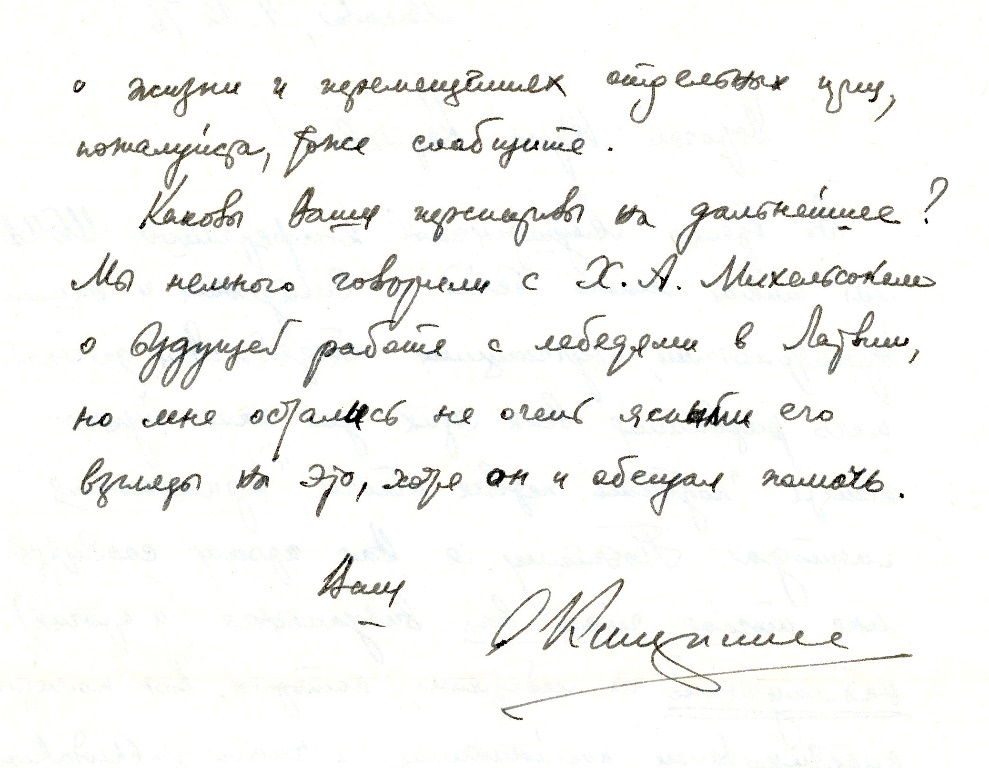 о жизни и перемещениях отдельных птиц,
пожалуйста, тоже сообщите.
Каковы Ваши перспективы на дальнейшее?
Мы немного говорили с Х. А. Михельсоном
о будущей работе с лебедями в Латвии,
но мне остались не очень ясными его
взгляды на это, хотя он и обещал помочь.
Ваш